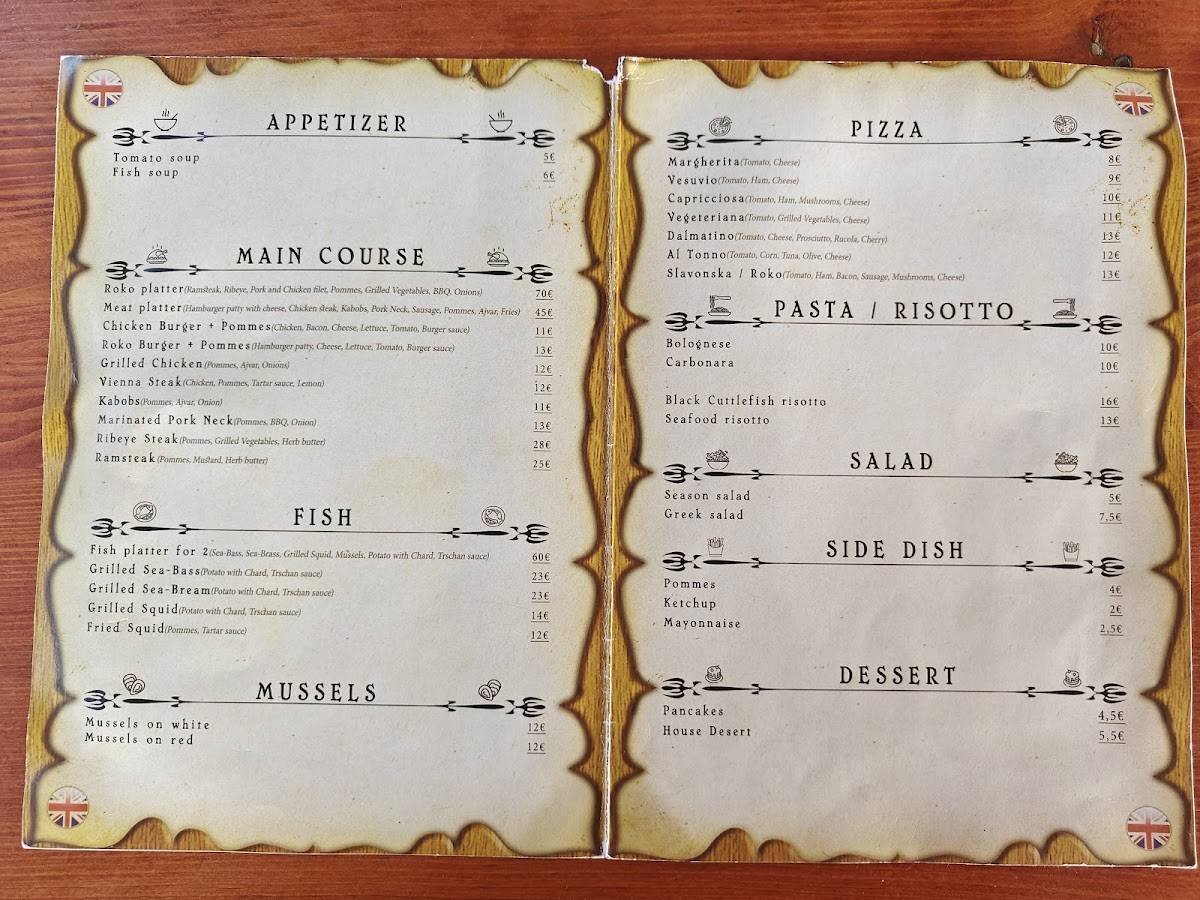 APPETIZER
Tomato soup 5€
Fish soup 6€
MAIN COURSE
Roko platter(Ramsteak, Ribeye, Pork and Chicken filet, Pommes, Grilled Vegetables, BBQ, Onions) 70€
Meat platter(Hamburger patty with cheese, Chicken steak, Kabobs, Pork Neck, Sausage, Pommes, Ajvar, Fries) 45€
Chicken Burger + Pommes(Chicken, Bacon, Cheese, Lettuce, Tomato, Burger sauce) 11€
Roko Burger + Pommes(Hamburger patty, Cheese, Lettuce, Tomato, Burger sauce) 13€
Grilled Chicken(Pommes, Ajvar, Onions) 12€
Vienna Steak(Chicken, Pommes, Tartar sauce, Lemon) 12€
Kabobs(Pommes, Ajvar, Onion) 11€
Marinated Pork Neck(Pommes, BBQ, Onion) 13€
Ribeye Steak(Pommes, Grilled Vegetables, Herb butter) 28€
Ramsteak(Pommes, Mustard, Herb butter) 25€
FISH
Fish platter for 2(Sea-Bass, Sea-Brass, Grilled Squid, Mussels, Potato with Chard, Trschan sauce) 60€
Grilled Sea-Bass(Potato with Chard, Trschan sauce) 23€
Grilled Sea-Bream(Potato with Chard, Trschan sauce) 23€
Grilled Squid(Potato with Chard, Trschan sauce) 14€
Fried Squid(Pommes, Tartar sauce) 12€
MUSSELS
Mussels on white 12€
Mussels on red 12€
PIZZA
Margherita(Tomato, Cheese) 8€
Vesuvio(Tomato, Ham, Cheese) 9€
Capricciosa(Tomato, Ham, Mushrooms, Cheese) 10€
Vegeteriana(Tomato, Grilled Vegetables, Cheese) 11€
Dalmatino(Tomato, Cheese, Prosciutto, Rucola, Cherry) 13€
Al Tonno(Tomato, Corn, Tuna, Olive, Cheese) 12€
Slavonska / Roko(Tomato, Ham, Bacon, Sausage, Mushrooms, Cheese) 13€
PASTA / RISOTTO
Bolognese 10€
Carbonara 10€
Black Cuttlefish risotto 16€
Seafood risotto 13€
SALAD
Season salad 5€
Greek salad 7,5€
SIDE DISH
Pommes 4€
Ketchup 2€
Mayonnaise 2,5€
DESSERT
Pancakes 4,5€
House Desert 5,5€